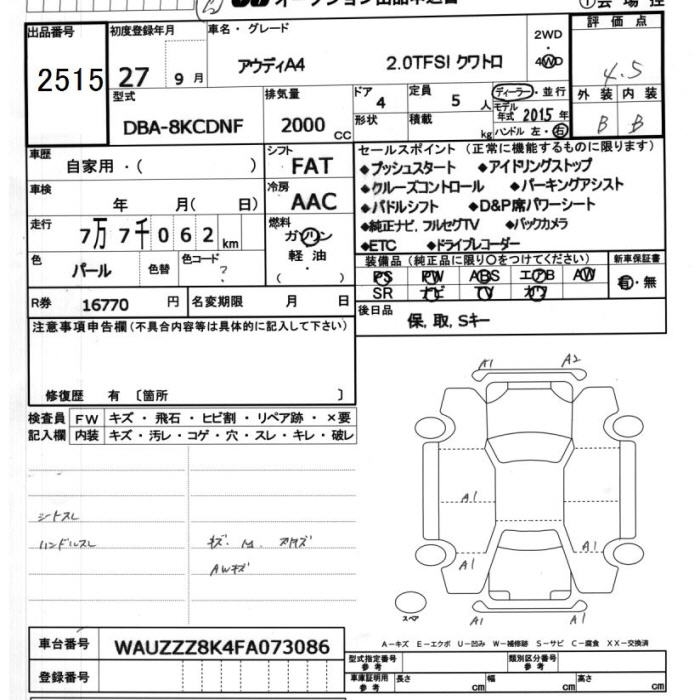 オークション出品申込書
①会場控
出品番号
2515
初度登録年月
27
9
月
車名・グレード
アウディA4
2.0TFSI クワトロ
2WD
4WD
評価点
4.5
型式
DBA-8KCDNF
排気量
2000
CC
ドア
4
形状
定員
5
人
積載
kg
ディーラー・並行
モデル年式
2015
年
ハンドル 左・右
外装
内装
B
B
車歴
自家用・(
)
シフト
FAT
車検
年
月(
日)
冷房
AAC
走行
7万7千062
km
燃料
ガソリン
軽油
(
)
色
パール
色替
色コード
?
R券
16770
円
名変期限
月
日
セールスポイント(正常に機能するものに限ります)
◆プッシュスタート ◆アイドリングストップ
◆クルーズコントロール ◆パーキングアシスト
◆パドルシフト ◆D&P席パワーシート
◆純正ナビ, フルセグTV ◆バックカメラ
◆ETC ◆ドライブレコーダー
装備品(純正品に限り○をつけてください)
新車保証書
PS
PW
ABS
エアB
AW
有・無
SR
ナビ
TV
カワ
後日品
保, 取, Sキー
注意事項申告欄(不具合内容等は具体的に記入して下さい)
修復歴 有〔箇所
〕
検査員
記入欄
FW
キズ・飛石・ヒビ割・リペア跡・×要
内装
キズ・汚レ・コゲ・穴・スレ・キレ・破レ
シートスレ
ハンドルスレ
AWキズ
A1
A2
A1
A1
A1
A1
A1
A1
スペア
A-キズ E-エクボ U-凹み W-補修跡 S-サビ C-腐食 XX-交換済
車台番号
WAUZZZ8K4FA073086
登録番号
型式指定番号
参考
類別区分番号
参考
車庫証明用
参考
長さ
cm
幅
cm
高さ
cm